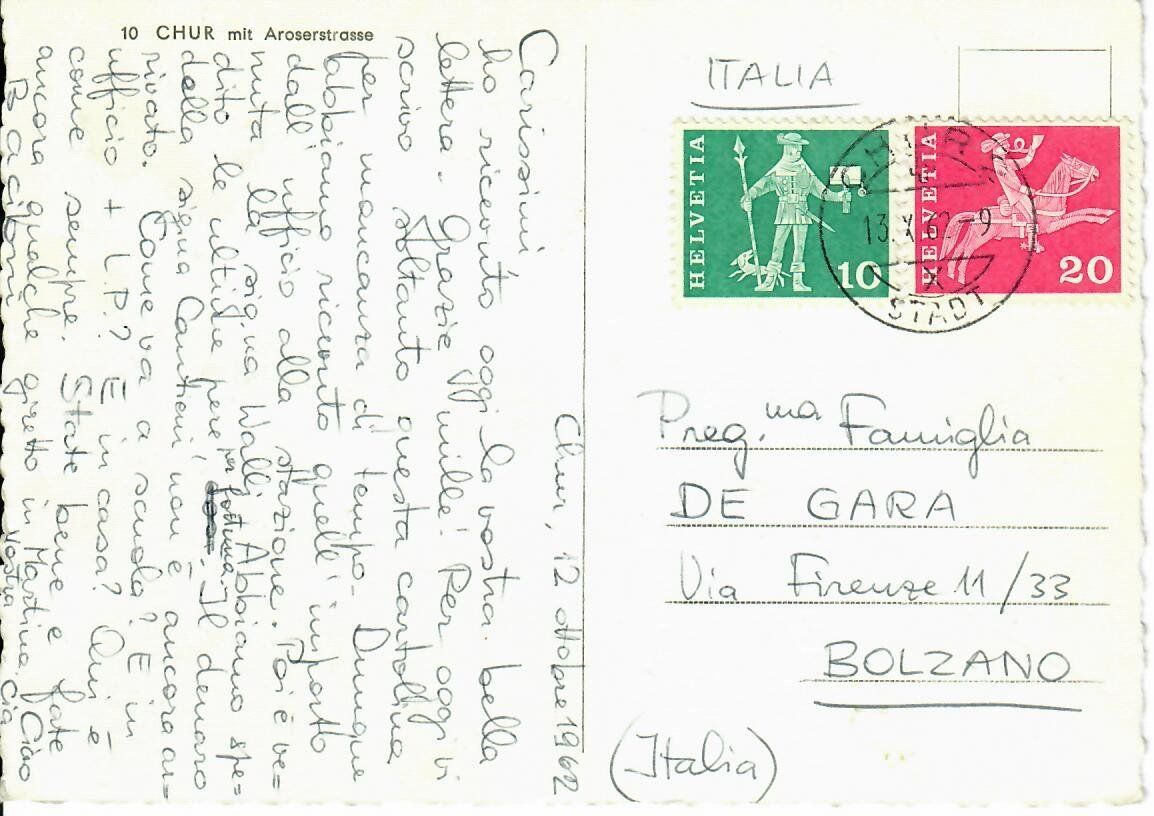 10 CHUR mit Aroserstrasse
Chur, 12 ottobre 1962
Carissimi
ho ricevuto oggi la vostra bella
lettera. Grazie mille! Per oggi vi
scrivo soltanto questa cartolina
per mancanza di tempo- Dunque
abbiamo ricevuto quell' importo
dall' ufficio alla stazione. Poi è ve=
nuta la sig.na Walli. Abbiamo spe=
dito le ultime pere, per fortuna. Il denaro
della sig.na Cantieni non è ancora ar-
rivato. Come va a scuola? E in
ufficio + L.P.? E in casa? Qui è
come sempre. State bene e fate
ancora qualche giretto in Martina. Ciao
Bacioni vostra Cia
ITALIA
HELVETIA 10
HELVETIA 20
CHUR
13.X.62-9
STADT
Preg.ma Famiglia
DE GARA
Via Firenze 11/33
BOLZANO
(Italia)